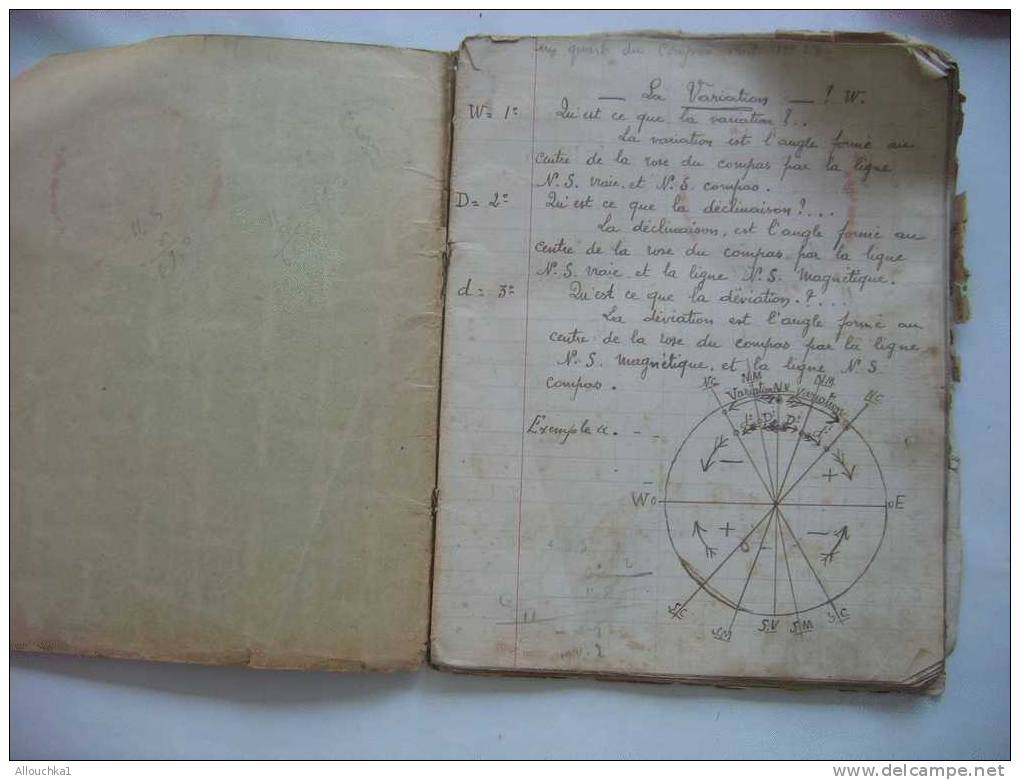 un quart du compas vaut
— La Variation — ? W.
W = 1º Qu'est ce que la variation ?..
La variation est l'angle formé au
centre de la rose du compas par la ligne
N.S. vraie, et N.S. compas.
D = 2º Qu'est ce que la déclinaison ?...
La déclinaison, est l'angle formé au
centre de la rose du compas par la ligne
N.S. vraie et la ligne N.S. Magnétique.
d = 3º Qu'est ce que la déviation.?...
La déviation est l'angle formé au
centre de la rose du compas par la ligne
N.S. magnétique, et la ligne N S
compas.
Exemple
N.C N.M N.V N.M N.C
Variation Variation
d D D d
— +
W E
+ — —
S.C S.M S.V S.M S.C
Allouchka1
www.delcampe.net